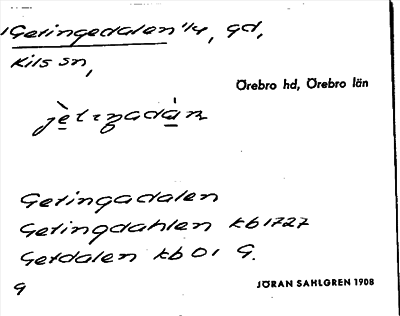 Getingedalen 1/4, gd,
Kils sn,
Örebro hd, Örebro län
Getingadalen
Getingdahlen kb 1727
Getdalen kb 01 G.
g
JÖRAN SAHLGREN 1908